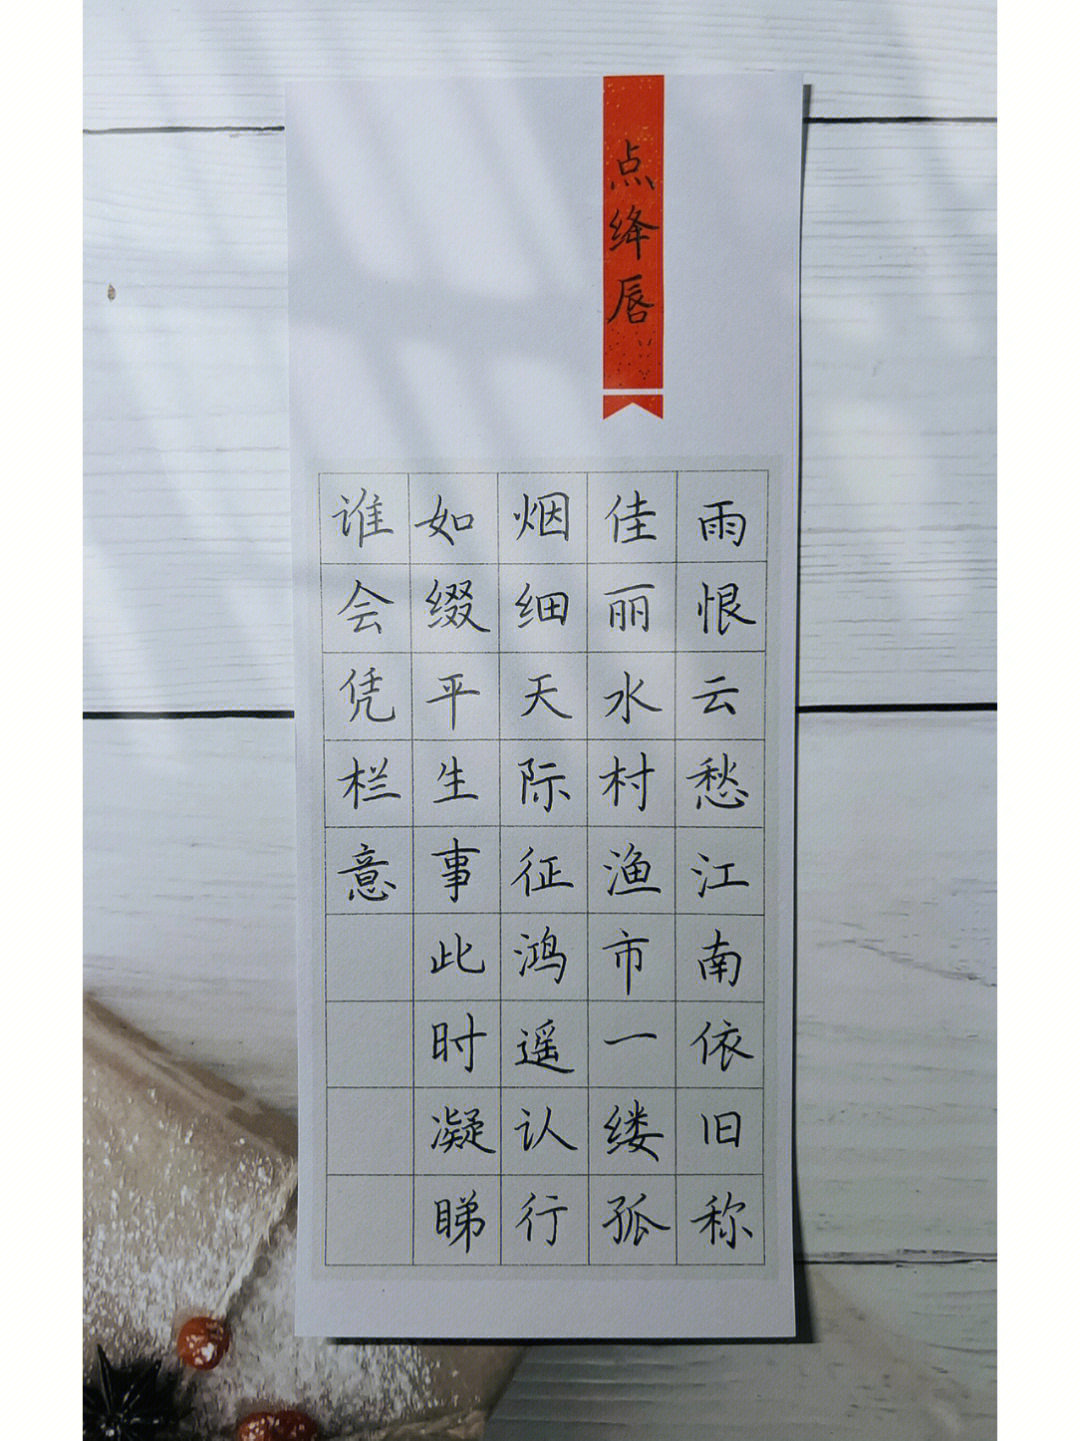 点绛唇
雨恨云愁江南依旧称
佳丽水村渔市一缕孤
烟细天际征鸿遥认行
如缀平生事此时凝睇
谁会凭栏意